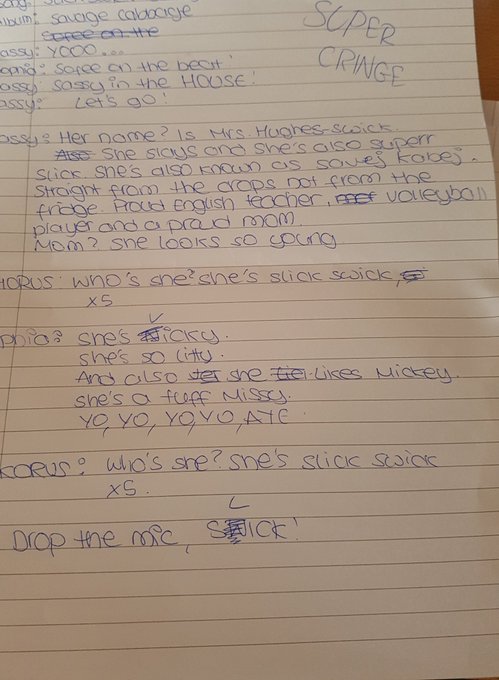 lbum: savage cabbage
SUPER
CRINGE
assy: YOOO....
ophia: Soree on the beat!
assy: sassy in the HOUSE!
assy: Let's go!
assy: Her name? Is Mrs. Hughes-Swick.
She slays and she's also superr
slick. She's also known as savej kabej.
straight from the crops not from the
fridge. Proud English teacher, volleyball
player and a proud mom.
Mom? She looks so young
HORUS: who's she? she's slick swick,
x5
phia: she's vicky.
she's so litty.
And also she likes Mickey.
she's a tuff Missy.
YO, YO, YO, YO, AYE
KORUS: who's she? she's slick swick
x5.
Drop the mic, SLICK!